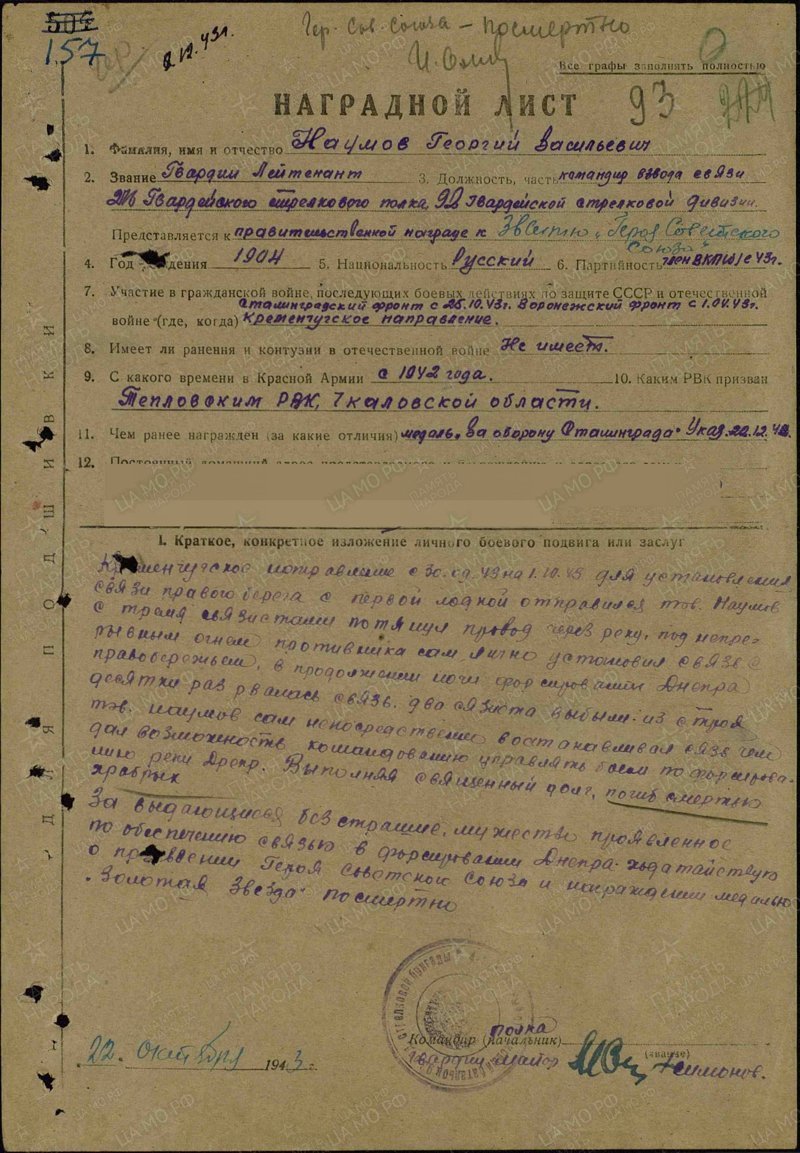 157
8.12.43г.
Гер. Сов. Союза – посмертно
Все графы заполнять полностью
НАГРАДНОЙ ЛИСТ 93
1. Фамилия, имя и отчество Наумов Георгий Васильевич
2. Звание Гвардии Лейтенант 3. Должность, часть командир взвода связи
Гвардейского стрелкового полка, 92 Гвардейской стрелковой дивизии.
Представляется к правительственной награде к званию „Героя Советского
Союза"
4. Год рождения 1904 5. Национальность Русский 6. Партийность член ВКП(б) с 43 г.
7. Участие в гражданской войне, последующих боевых действиях по защите СССР и отечественной
Сталинградский фронт с 25.10.43г. Воронежский фронт с 1.04.43г.
войне (где, когда) Кременчугское направление.
8. Имеет ли ранения и контузии в отечественной войне Не имеет.
9. С какого времени в Красной Армии с 1942 года. 10. Каким РВК призван
Тепловским РВК, Чкаловской области.
11. Чем ранее награжден (за какие отличия) медаль „За оборону Сталинграда" Указ. 22.12.42.
12.
I. Краткое, конкретное изложение личного боевого подвига или заслуг
Кременчугское направление с 30.09.43 на 1.10.43 для установления
связи правого берега с первой лодкой отправился тов. Наумов
с тремя связистами потянул провод через реку, под непре-
рывным огнем противника сам лично установил связь с
правобережьем, в продолжении ночи форсирования Днепра
десятки раз рвалась связь. два связиста выбыли из строя
тов. Наумов сам непосредственно восстанавливал связь чем
дал возможность командованию управлять боем по форсирова-
нию реки Днепр. Выполняя священный долг, погиб смертью
храбрых
За выдающиеся бесстрашие, мужество проявленное
по обеспечению связью в форсировании Днепра ходатайствую
о присвоении Героя Советского Союза и награждении медалью
„Золотая Звезда" посмертно
22. октября 1943 г.
полка
Командир (начальник)
гвардии майор (звание) Симонов.
ДЛЯ ПОДШИВКИ